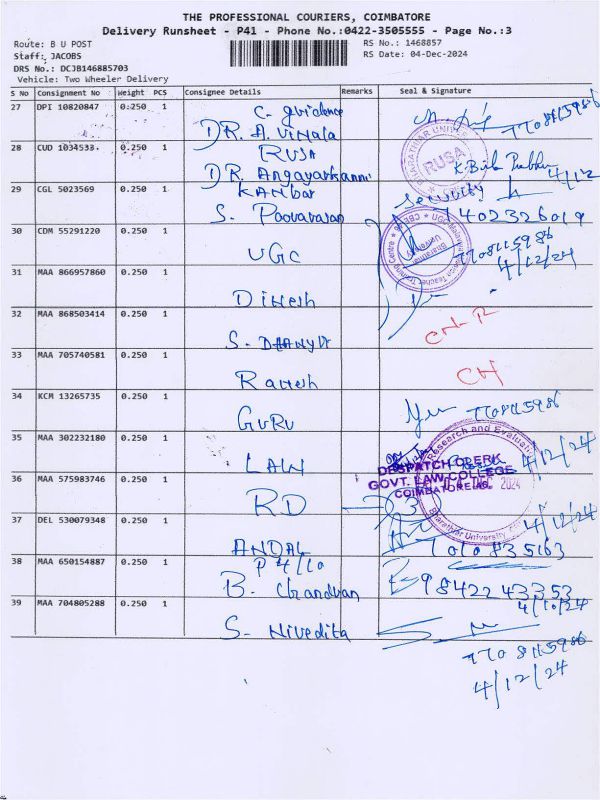 THE PROFESSIONAL COURIERS, COIMBATORE
Delivery Runsheet - P41 - Phone No.:0422-3505555 - Page No.:3
Route: B U POST
RS No.: 1468857
Staff: JACOBS
RS Date: 04-Dec-2024
DRS No.: DCJB146885703
Vehicle: Two Wheeler Delivery
S No Consignment No Weight PCS Consignee Details Remarks Seal & Signature
27 DPI 10820847 0.250 1 C. guidence
DR. A. Vimala
7708115986
28 CUD 1034533 0.250 1 RUSA
DR. Angayarkanni
4/12
29 CGL 5023569 0.250 1 KANbar
S. Poovarasan
security
30 CDM 55291220 0.250 1 UGC
7708115986
4/12/24
31 MAA 866957860 0.250 1 Dinesh
32 MAA 868503414 0.250 1 S. DHANYA
33 MAA 705740581 0.250 1 Ramesh
CH
34 KCM 13265735 0.250 1 GURU
7708115986
35 MAA 302232180 0.250 1 LAW
4/12/24
DESPATCH CLERK
GOVT. LAW COLLEGE
COIMBATORE
36 MAA 575983746 0.250 1 RD
37 DEL 530079348 0.250 1 ANDAL
4/12/24
38 MAA 650154887 0.250 1 P 4/10
B. Chandran
9842243353
4/10/24
39 MAA 704805288 0.250 1 S. Nivedita
7708115986
4/12/24